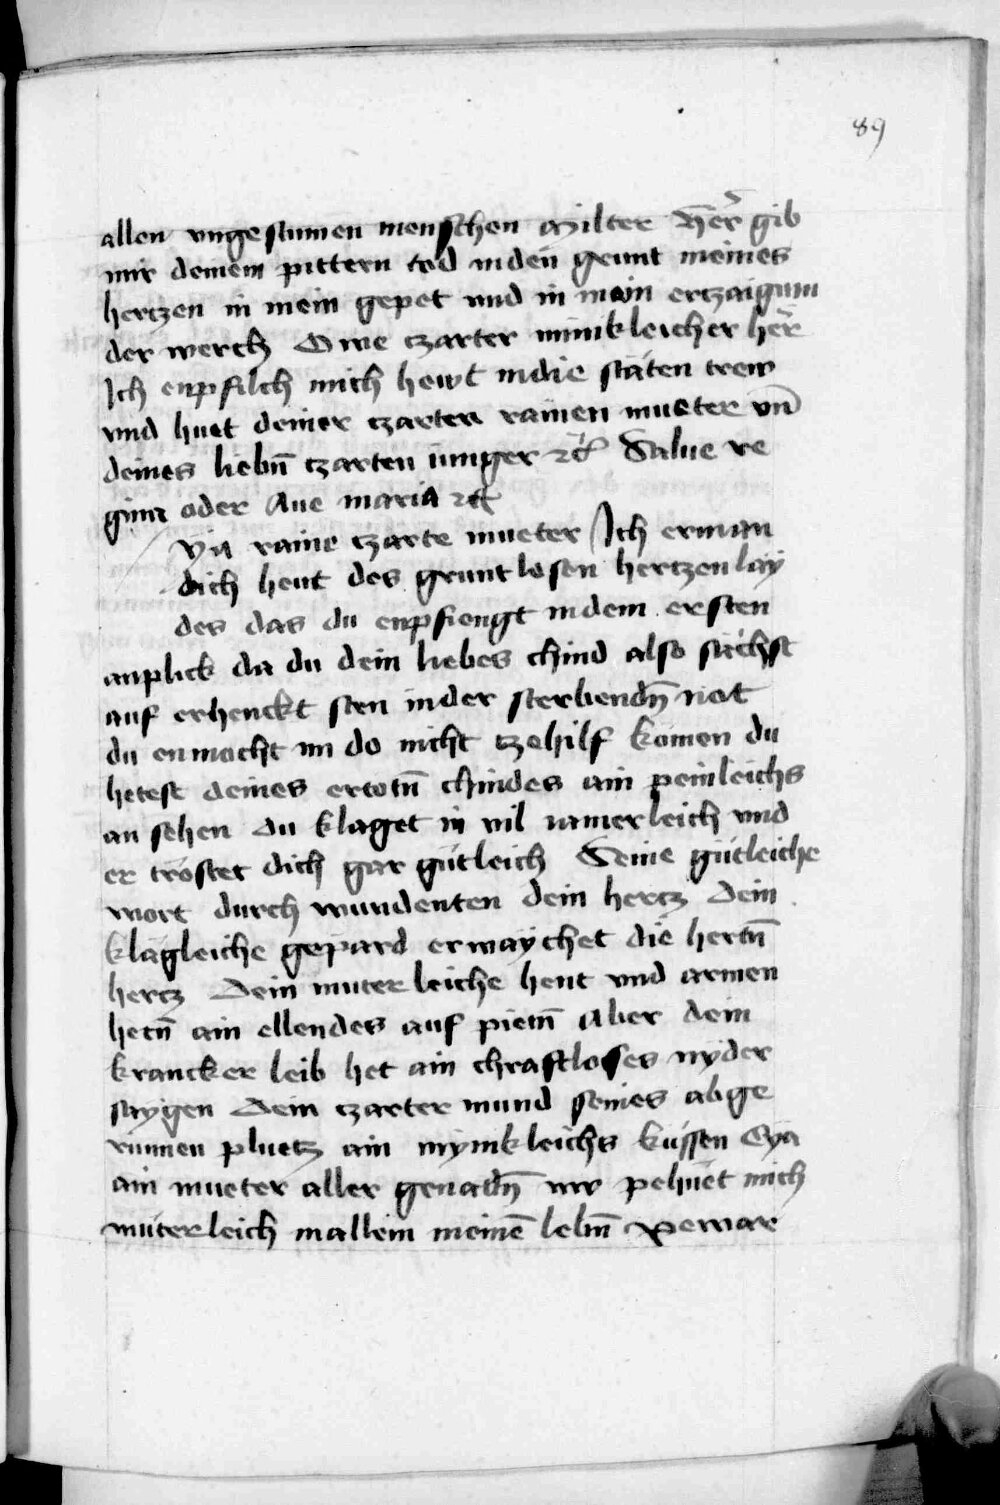 89
allen vngestumen menschen Milter Her̄ gib
mir deinem pittern tod in den grunt meines
hertzen in mein gepet vnd in mein ertzaigum
der werch Owe tzarter minikleicher her̄
Ich enpfilch mich hewt in die stäten trew
vnd huet deiner tzarten rainen mueter vn̄
deines liebn̄ tzarten iunger etc̄ Salue re
gina oder Aue maria etc̄
Eya raine tzarte mueter Ich erman
dich heut des gruntlosen hertzenlay
des das du enpfiengt in dem ersten
anplick da du dein liebes chind also sächst
auf erhenckt sten in der sterbendn̄ not
du en mocht im do nicht tzehilf kömen du
hetest deines ertotn̄ chindes ain peinleichs
an sehen du klaget in vil iamerleich vnd
er tröstet dich gar gütleich Seine gütleiche
wort durch wundenten dein hertz Dein
klägleiche gepärd erwaychet die hertn̄
hertz Dein muterleiche hent vnd armen
hetn̄ ain ellendes auf pietn̄ Aber dein
krancker leib het ain chraftloses nyder
saygen Dein tzarter mund seines abge
runnen pluetz ain mynikleichs küssen Eya
ain mueter aller genadn̄ nw pehüet mich
müterleich in allem meinē lebn̄ pewar